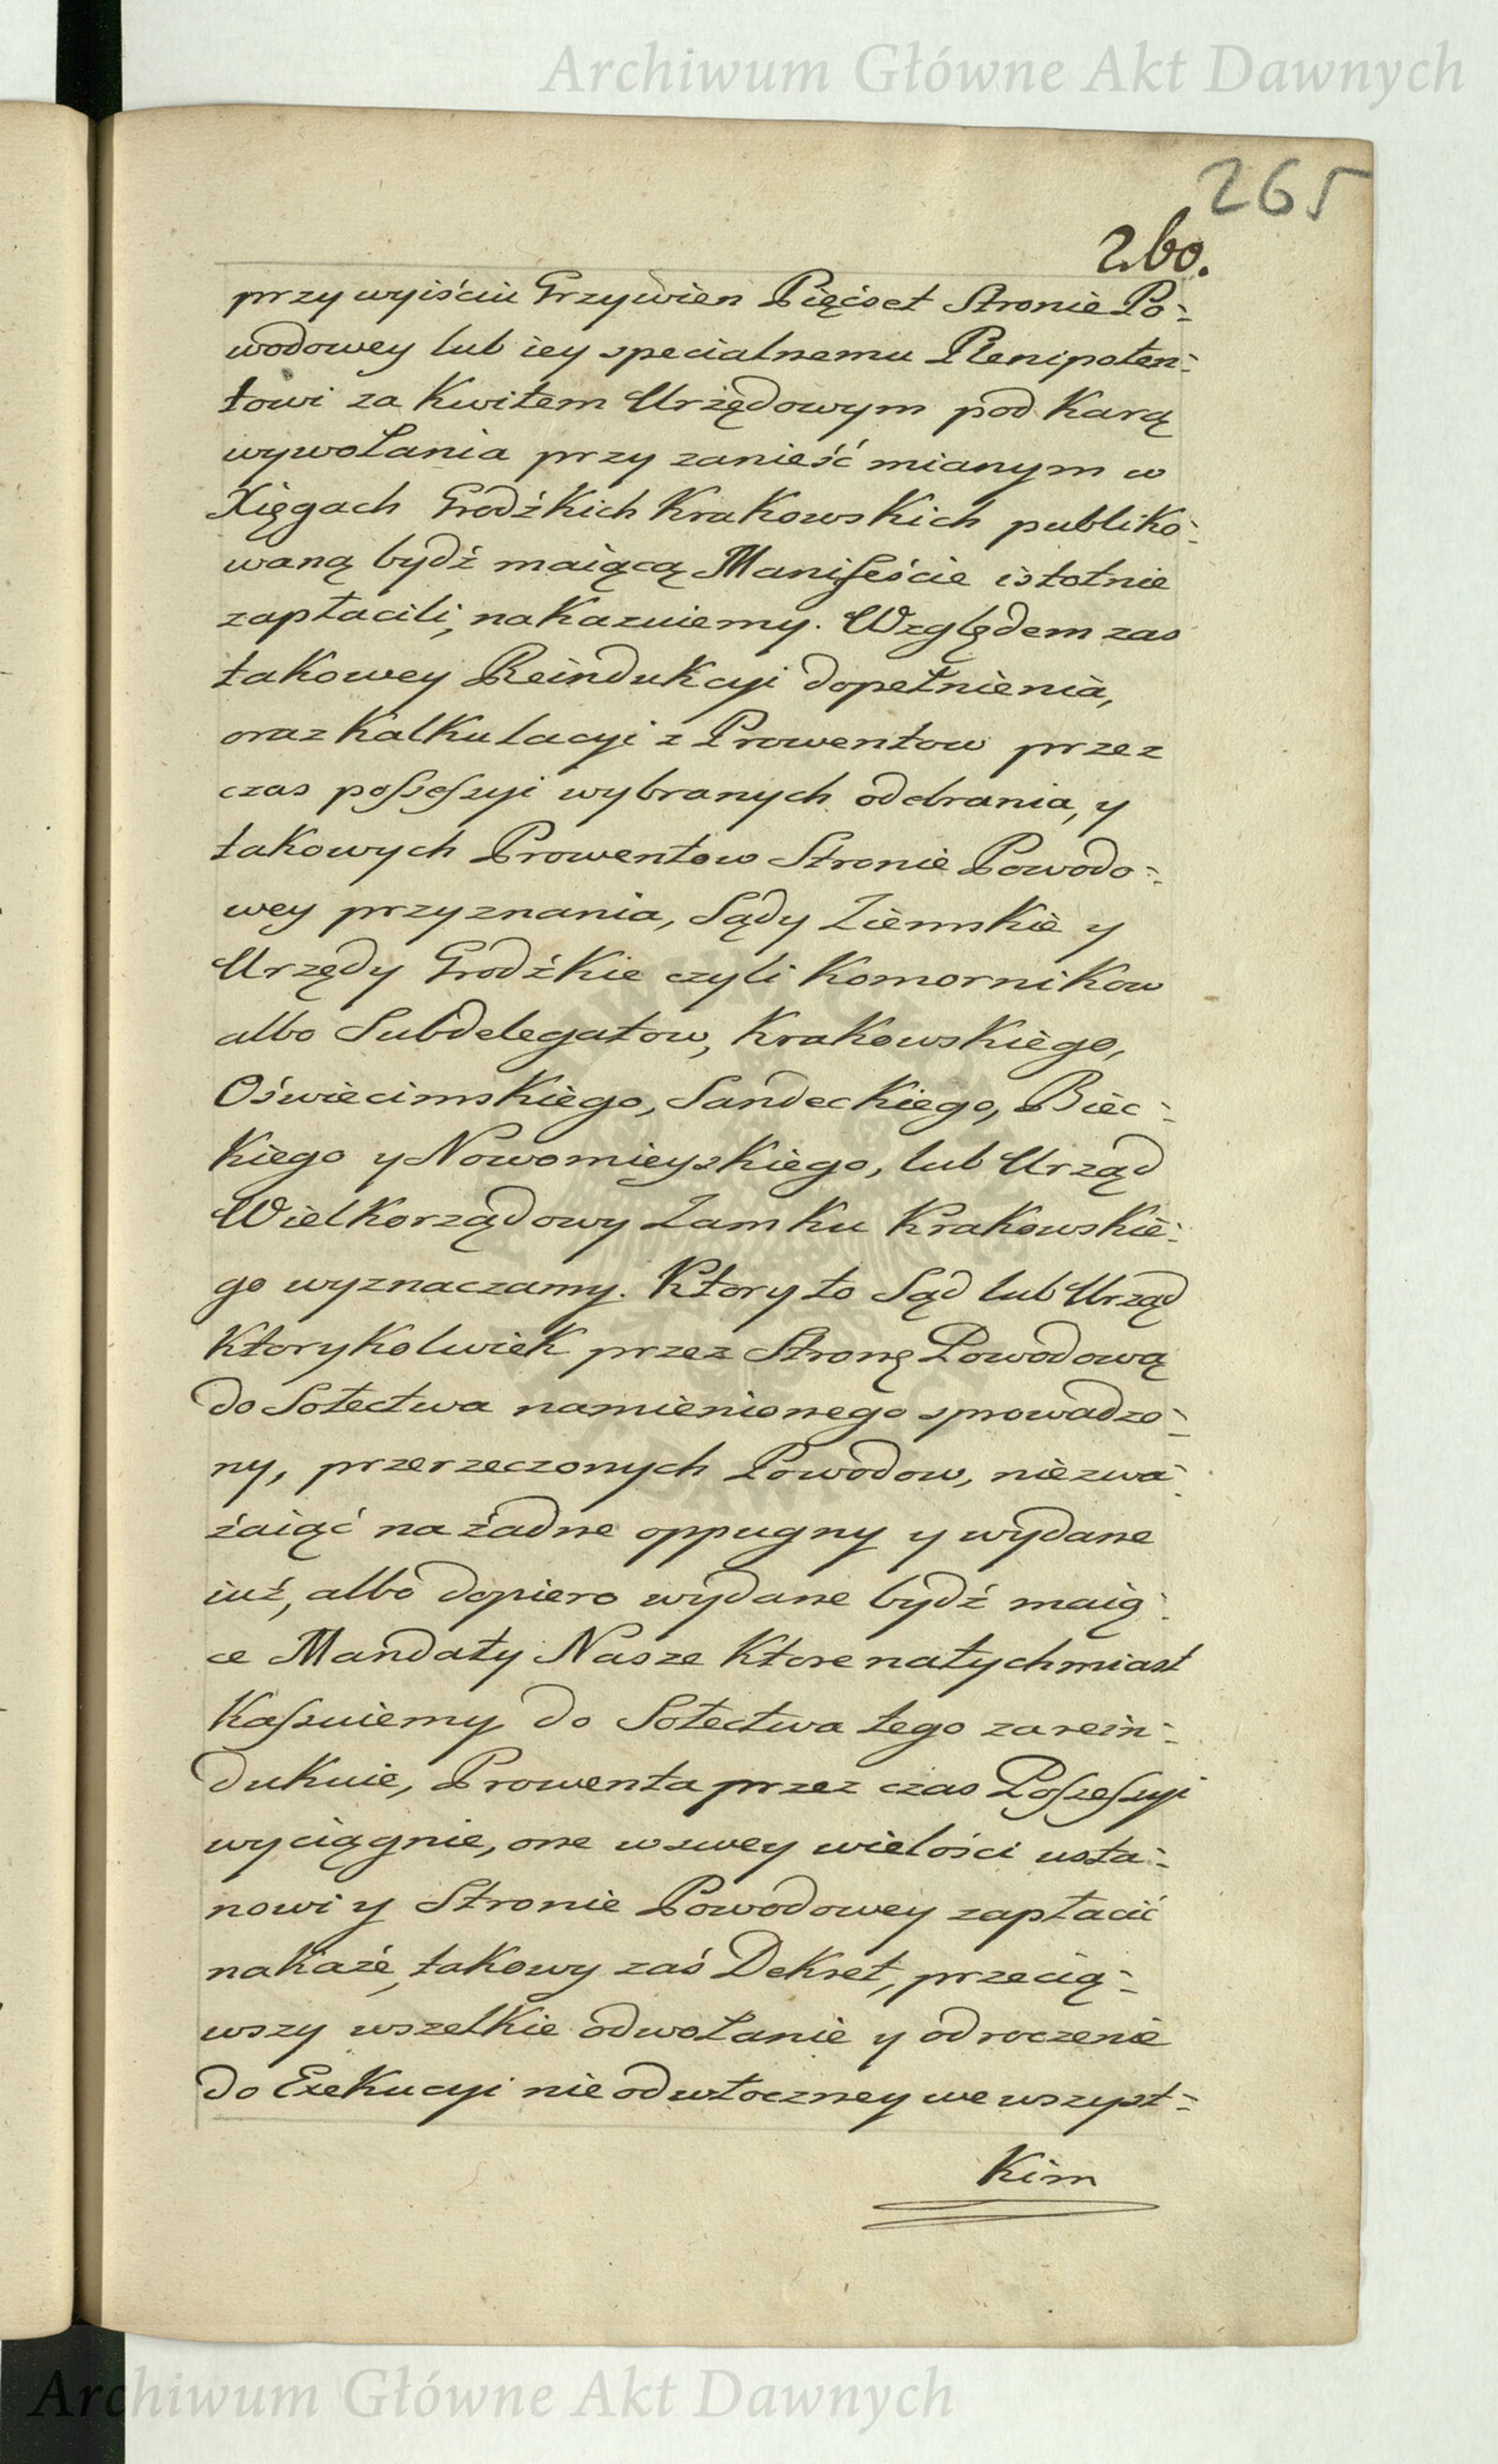 Archiwum Główne Akt Dawnych
265
260.
przy wyiściu Grzywien Pięćset Stronie Po-
wodowey lub iey specialnemu Plenipoten-
towi za Kwitem Urzędowym pod Karą
wywołania przy zanieść mianym w
Xięgach Grodźkich Krakowskich publiko-
waną bydź maiącą Manifeście istotnie
zapłacili, nakazuiemy. Względem zas
takowey Reindukcyi dopełnienia,
oraz Kalkulacyi z Prowentow przez
czas possessyi wybranych odebrania, y
takowych Prowentow Stronie Powodo-
wey przyznania, Sądy Ziemskie y
Urzędy Grodźkie czyli Komornikow
albo Subdelegatow, Krakowskiego,
Oświecimskiego, Sandeckiego, Biec-
kiego y Nowomieyskiego, lub Urząd
Wielkorządowy Zamku Krakowskie-
go wyznaczamy. Ktory to Sąd lub Urząd
Ktorykolwiek przez Stronę Powodową
do Sołectwa namienionego sprowadzo-
ny, przerzeczonych Powodow, niezwa-
żaiąć na żadne oppugny y wydane
iuź, albo dopiero wydane bydź maią-
ce Mandaty Nasze Ktore natychmiast
Kassuiemy do Sołectwa tego zarein-
dukuie, Prowenta przez czas Possessyi
wyciągnie, one w swey wielości usta-
nowi y Stronie Powodowey zapłacić
nakaże, takowy zaś Dekret, przecią-
wszy wszelkie odwołanie y odroczenie
do Exekucyi nieodwłoczney we wszyst-
Kim
Archiwum Główne Akt Dawnych